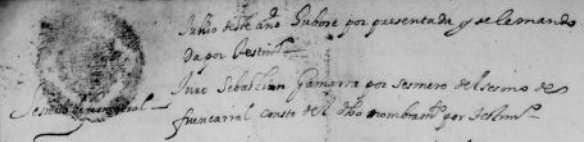 Junio deste año Hubose por presentada y se le mando
Da por testim.º
Juro Sebastian Gamarra por sesmero del sesmo de
Sesmero de fuencarral
fuencarral consto del dho nombram.to por testim.º